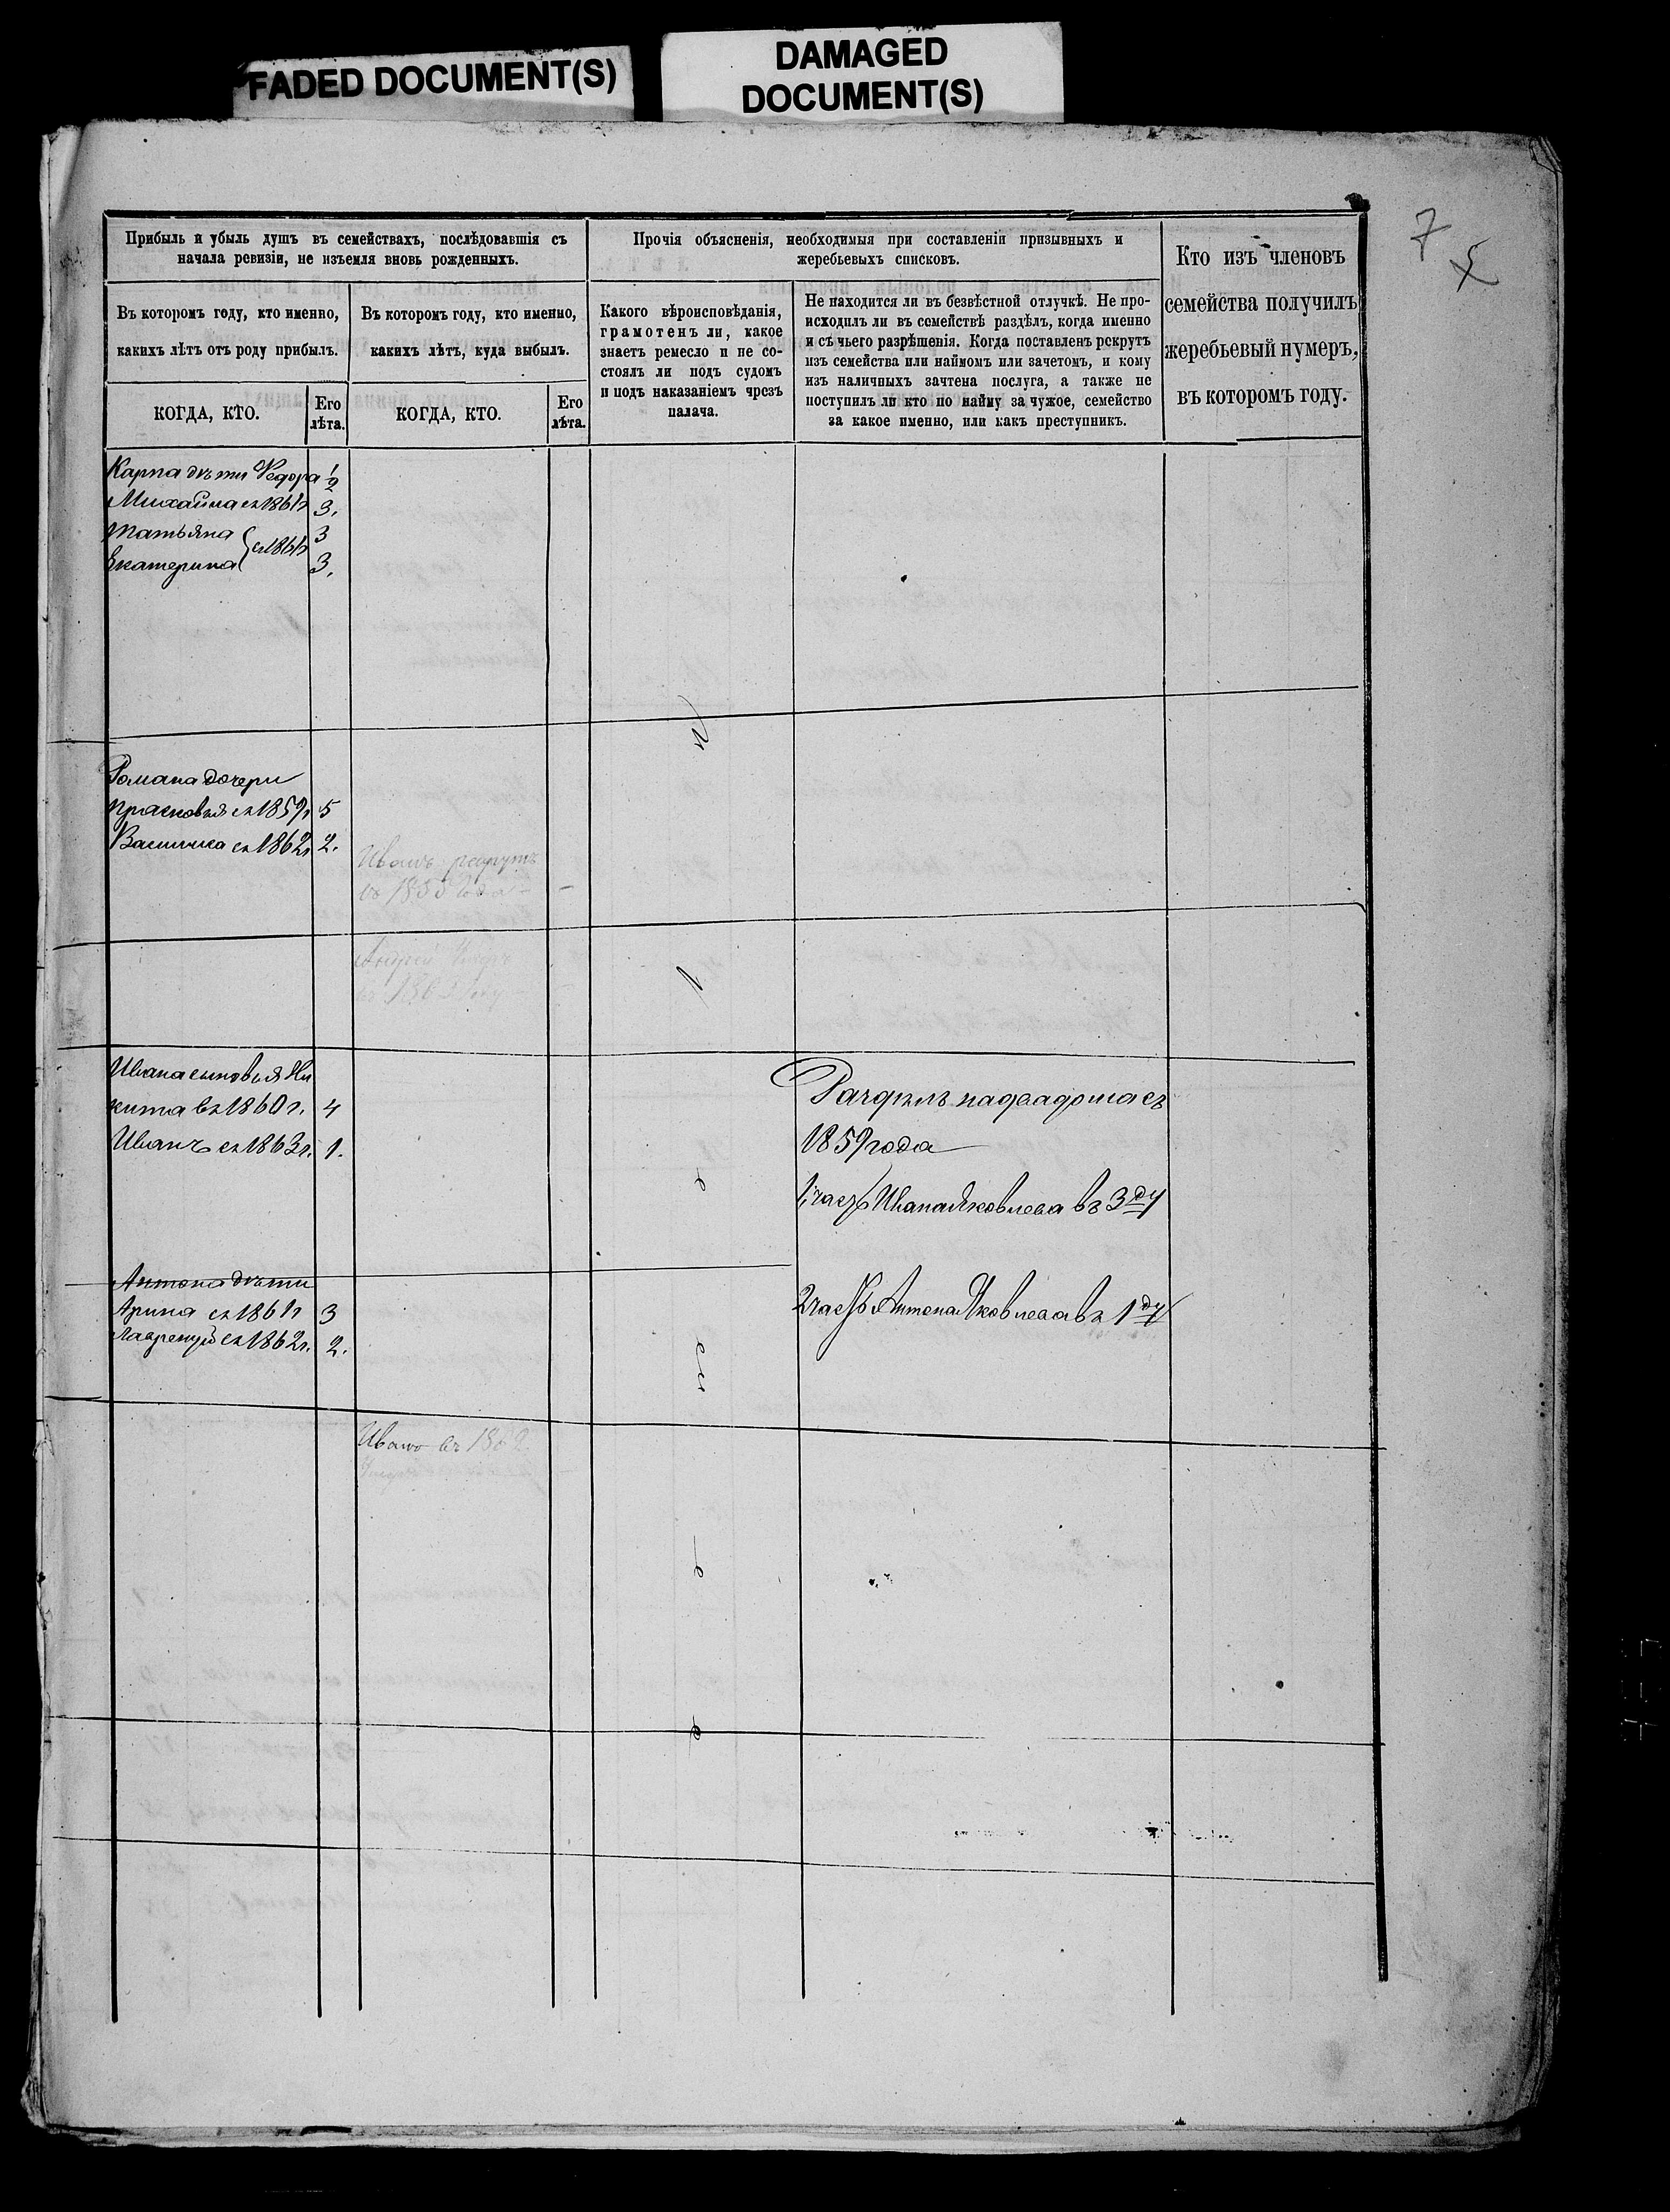 FADED DOCUMENT(S)
DAMAGED
DOCUMENT(S)
7
5
Прибыль и убыль душъ въ семействахъ, послѣдовавшія съ
начала ревизіи, не изъемля вновь рожденныхъ.
Прочія объясненія, необходимыя при составленіи призывныхъ и
жеребьевыхъ списковъ.
Кто изъ членовъ
семейства получилъ
жеребьевый нумеръ,
въ которомъ году.
Въ которомъ году, кто именно,
какихъ лѣтъ отъ роду прибылъ.
Въ которомъ году, кто именно,
какихъ лѣтъ, куда выбылъ.
Какого вѣроисповѣданія,
грамотенъ ли, какое
знаетъ ремесло и не со-
стоялъ ли подъ судомъ
и подъ наказаніемъ чрезъ
палача.
Не находится ли въ безвѣстной отлучкѣ. Не про-
исходилъ ли въ семействѣ раздѣлъ, когда именно
и съ чьего разрѣшенія. Когда поставленъ рекрутъ
изъ семейства или наймомъ или зачетомъ, и кому
изъ наличныхъ зачтена послуга, а также не
поступилъ ли кто по найму за чужое, семейство
за какое именно, или какъ преступникъ.
КОГДА, КТО.
Его
лѣта.
КОГДА, КТО.
Его
лѣта.
Карпа дѣти Федора 1/2
Михайла съ 1861г 3.
Татьяна 3
съ 1861г
Екатерина 3.
Романа дочери
Прасковья съ 1859г 5
Василиса съ 1862г 2.
Иванъ рекрутъ
въ 185 года
Андрей
Ивана сыновья Ни
кита въ 1860 г. 4
Иванъ съ 1863г. 1.
1859 года
1 часть Ивана Яковлева въ 3ду
Антона дѣти
Арина съ 1861г 3
Лаврентій съ 1862г. 2.
2 часть Антона Яковлева въ 1ду
Иванъ въ 1862